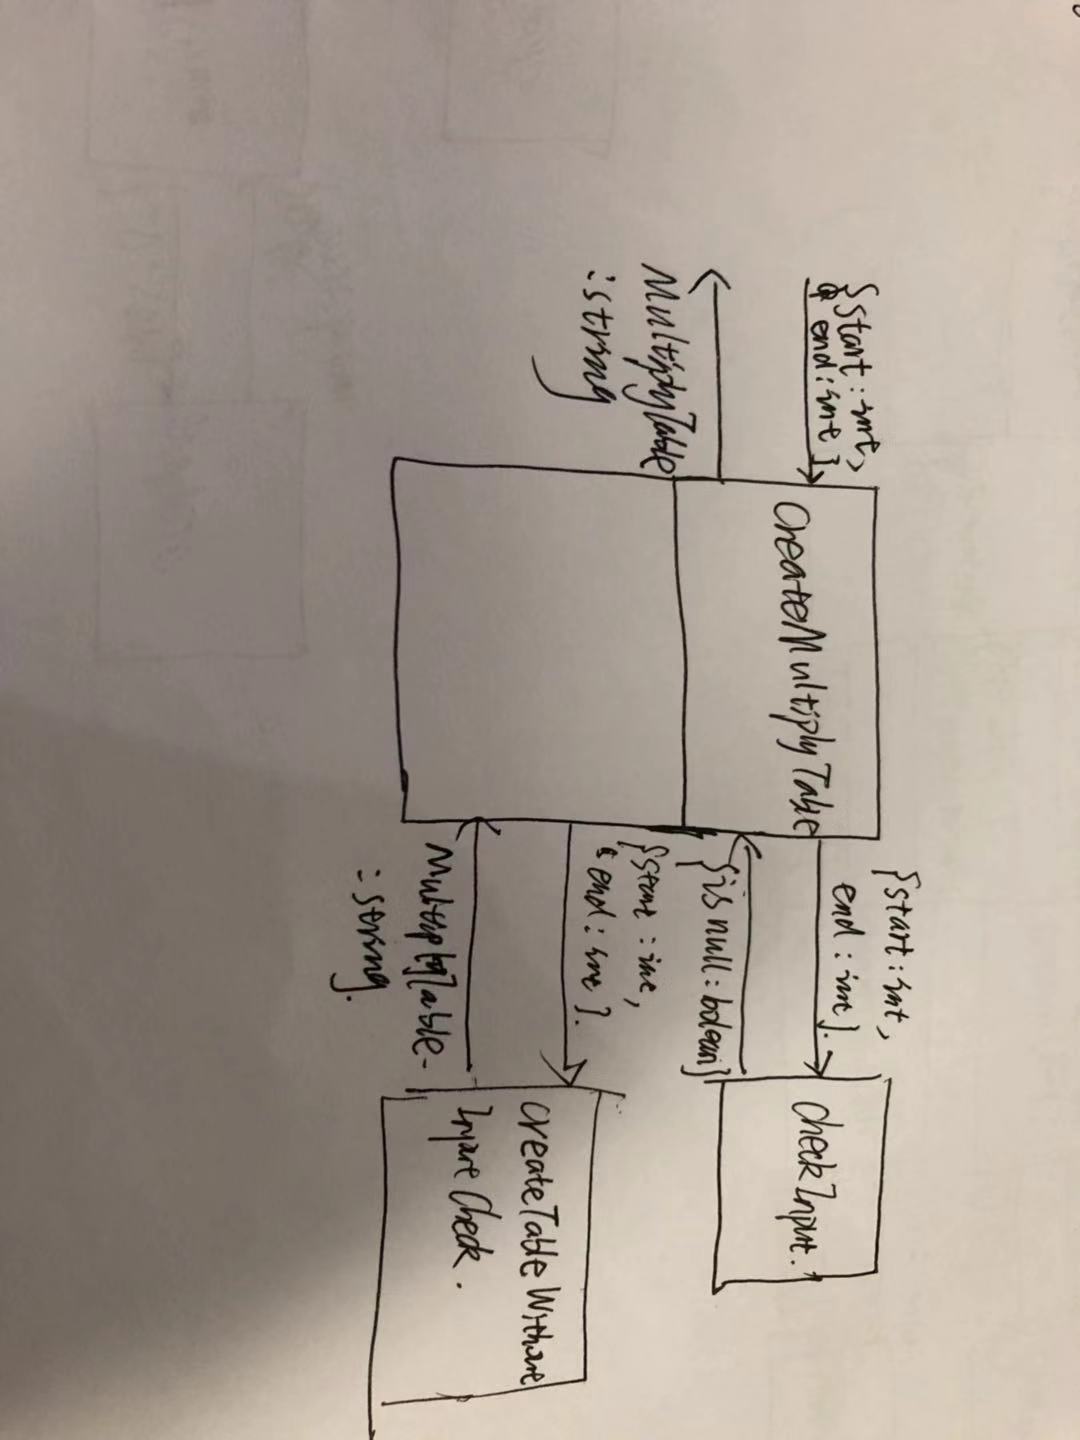 {start:int,
end:int}
CreateMultiplyTable
MultiplyTable
:string
{start:int,
end:int}.
checkInput.
{isnull:bolean}
{start:int,
end:int}.
CreateTableWithout
Input Check.
MultiplyTable-
:string.